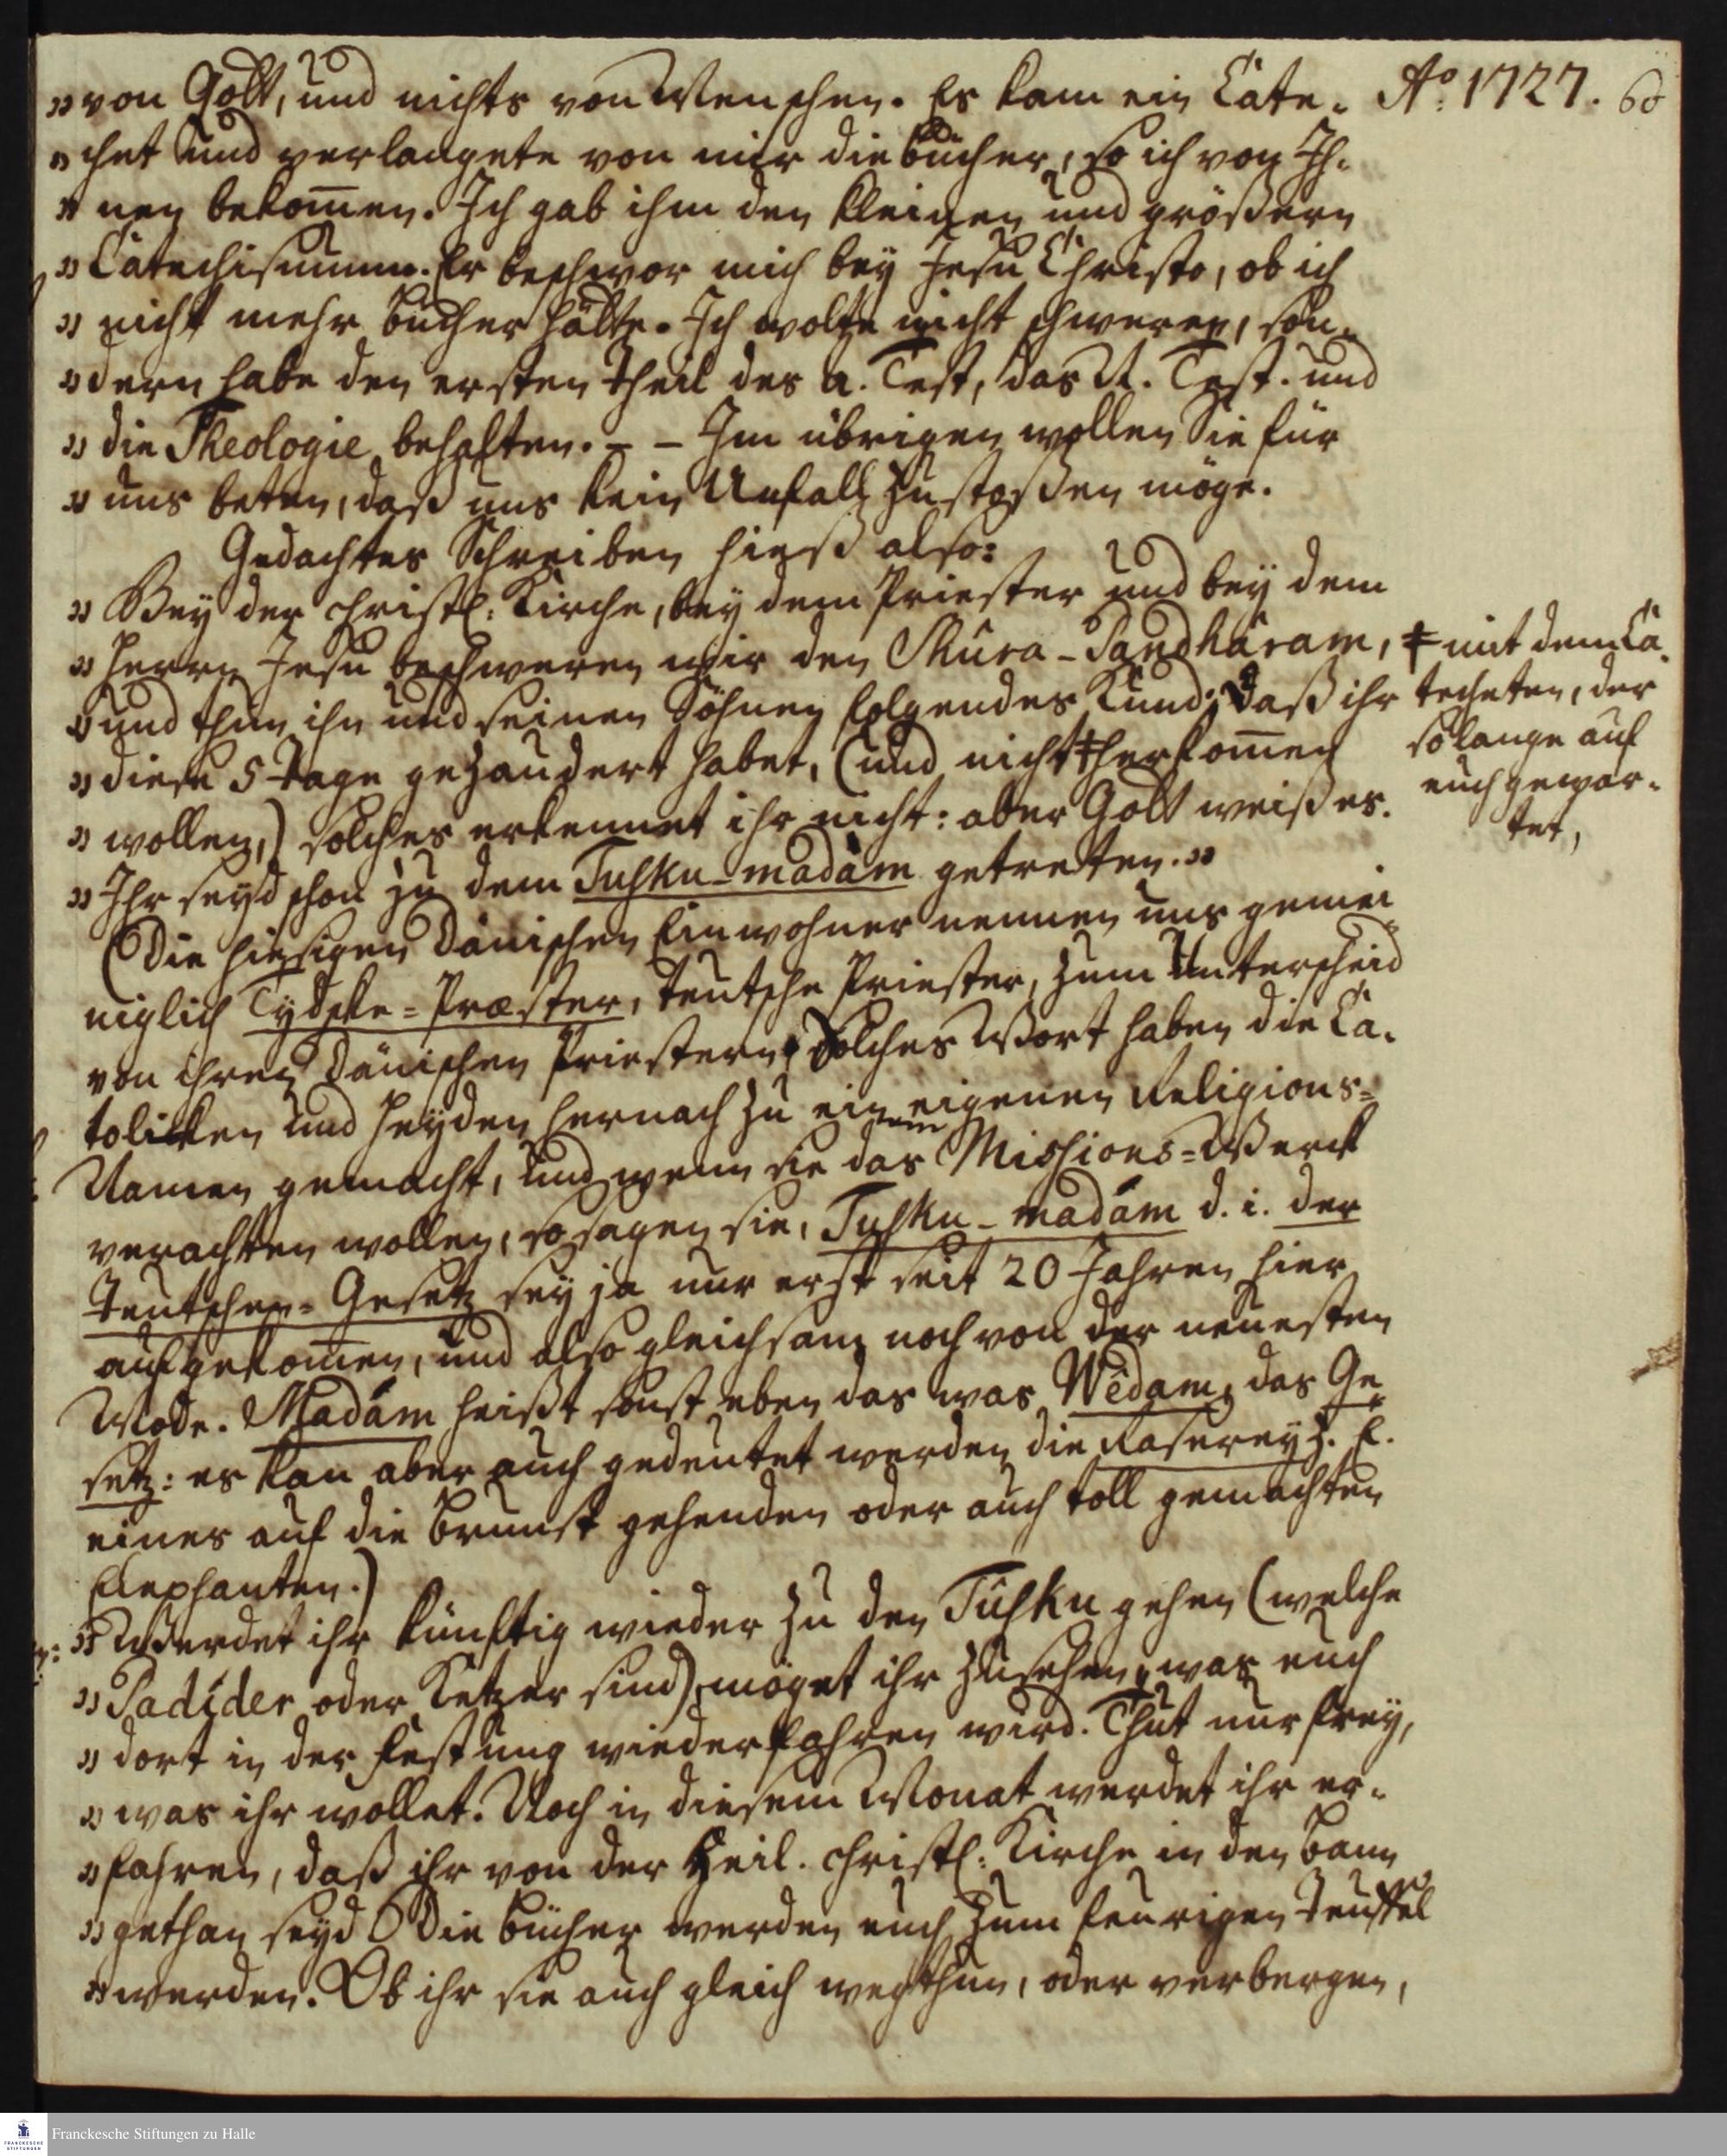 Aō. 1727. 60
„ von Gott, und nichts von Menschen. Es kam ein Cate-
„ chet und verlangete von mir die Bücher, so ich von Ih-
„ nen bekom̅en. Ich gab ihm den kleinen und größern
„ Catechismum. Er beschwor mich bey Jesu Christo, ob ich
„ nicht mehr Bücher hätte. Ich wolte nicht schweren, son-
„ dern habe den ersten Theil des A. Test, das N. Test. und
„ die Theologie behalten. – – Im übrigen wollen Sie für
„ uns beten, daß uns kein Unfall zustoßen möge.
Gedachtes Schreiben hieß also:
„ Bey der christl. Kirche, bey dem Priester und bey dem
„ Herrn Jesu beschweren wir den Shûra-Pandhâram,
„ und thun ihn und seinen Söhnen folgendes kund; Daß ihr
„ diese 5 Tage gezaudert habet, (und nicht ‡ herkom̅en
„ wollen,) solches erkennet ihr nicht: aber Gott weiß es.
„ Ihr seyd schon zu dem Tuſku-madàm getreten. „
‡ mit dem Ca-
techeten, der
so lange auf
euch gewar-
tet,
(Die hiesigen Dänischen Einwohner nennen uns gemei
niglich Tydske-Præster, teutsche Priester, zum Unterscheid
von ihren Dänischen Priestern; Solches Wort haben die Ca-
tolicken und Heyden hernach zu einem eigenen Religions-
Namen gemacht, und wenn sie das Missions-Werck
verachten wollen, so sagen sie, Tuſku-madám d. i. der
Teutschen-Gesetz sey ja nur erst seit 20 Jahren hier
aufgekom̅en, und also gleichsam noch von der neuesten
Mode. Madám heißt sonst eben das was Wêdam, das Ge-
setz: es kan aber auch gedeutet werden die Raserey z. E.
eines auf die Brunst gehenden oder auch toll gemachten
Elephanten.)
„ Werdet ihr künftig wieder zu den Tûſku gehen (welche
„ Padíder oder Ketzer sind), möget ihr zusehen, was euch
„ dort in der Festung wiederfahren wird. Thut nur frey,
„ was ihr wollet. Noch in diesem Monat werdet ihr er-
„ fahren, daß ihr von der Heil. christl. Kirche in den Bann
„ gethan seyd. Die Bücher werden euch zum feurigen Teuffel
„ werden. Ob ihr sie auch gleich wegthun, oder verbergen,
Franckesche Stiftungen zu Halle